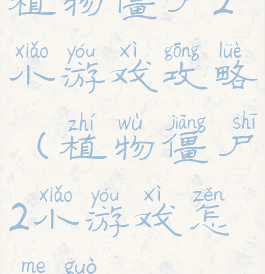 植物僵尸2
xiǎo yóu xì gōng lüè
小游戏攻略
zhí wù jiāng shī
（植物僵尸
xiǎo yóu xì zěn
2小游戏怎
me guò